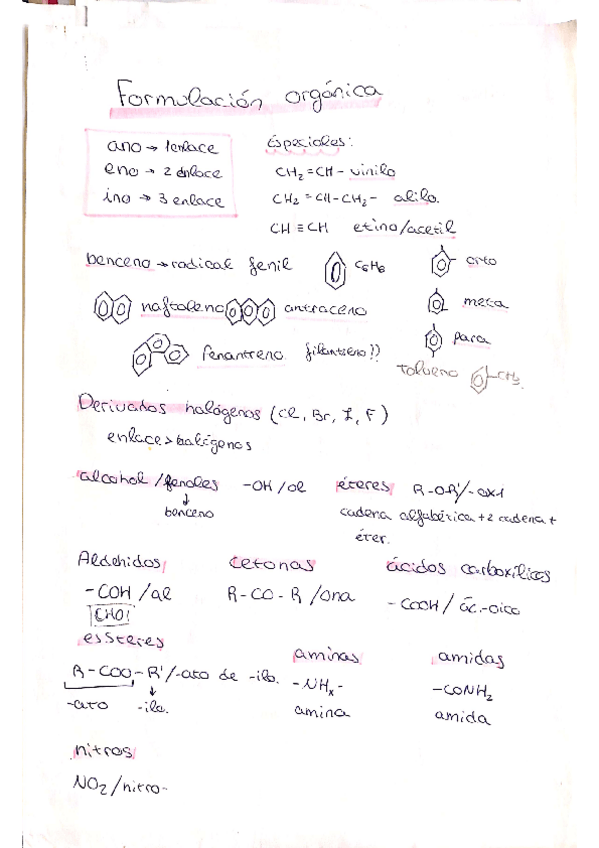 Formulación orgánica
ano → 1 enlace
eno → 2 enlace
ino → 3 enlace
Especiales:
CH₂=CH- vinilo
CH₂=CH-CH₂- alilo.
CH≡CH etino/acetil
benceno → radical fenil C₆H₆
orto
meta
para
naftaleno antraceno
fenantreno filantreno??
tolueno CH₃
Derivados halógenos (Cl, Br, I, F)
enlace > halógenos
alcohol/fenoles -OH/ol
↓
benceno
éteres R-O-R'/-oxi
cadena alfabética + 2 cadena +
éter.
Aldehidos
-COH/al
CHO!
cetonas
R-CO-R/ona
ácidos carboxílicos
-COOH/ác.-oico
essteres
R-COO-R'/-ato de -ilo.
-ato -ilo.
aminas
-NHₓ-
amina
amidas
-CONH₂
amida
nitros
NO₂/nitro-